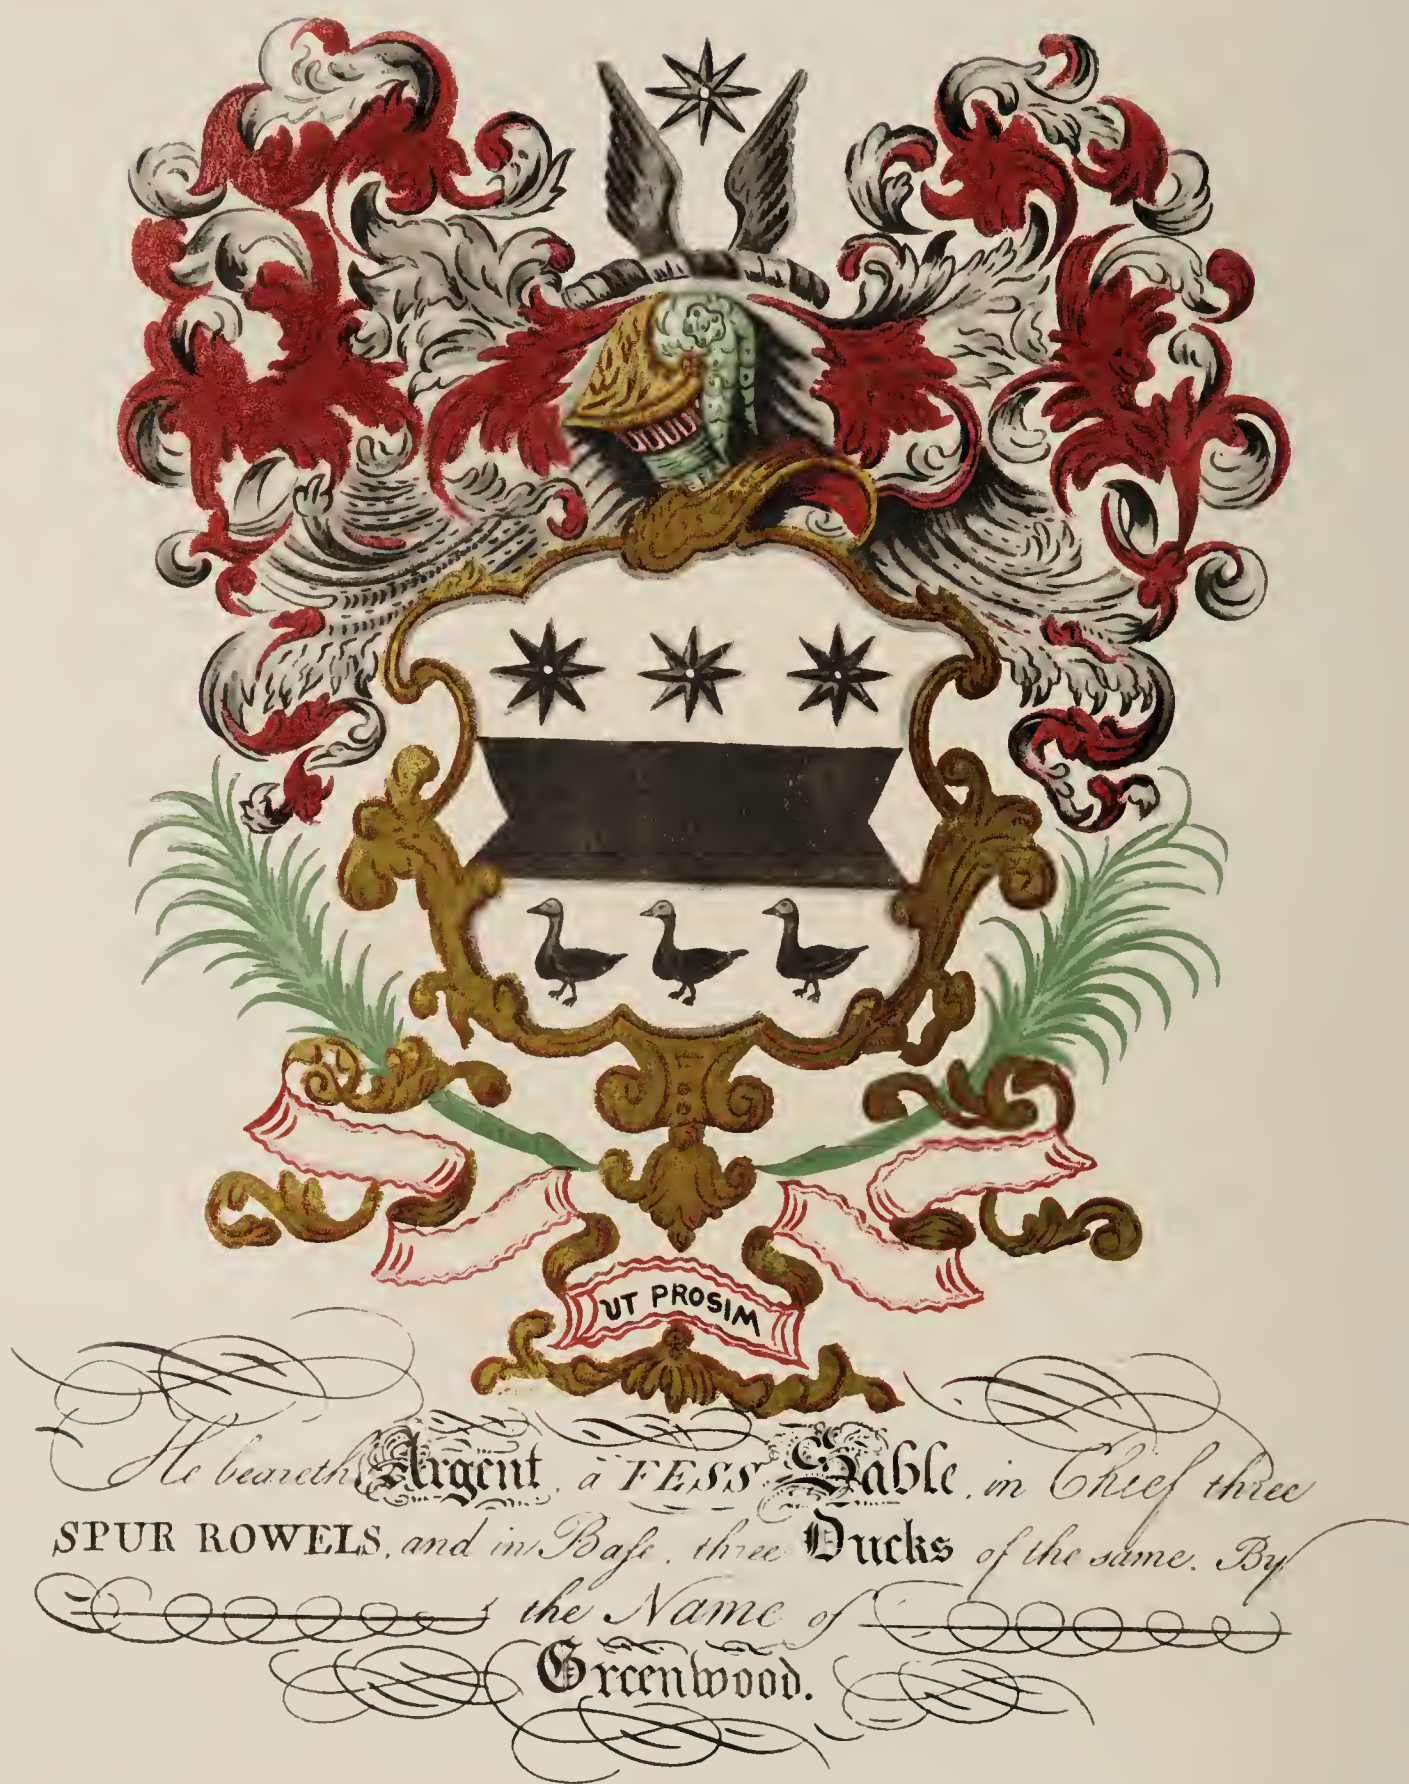 UT PROSIM
He beareth Argent, a FESS Sable, in Chief three
SPUR ROWELS, and in Baſe, three Ducks of the same. By
the Name of
Greenwood.